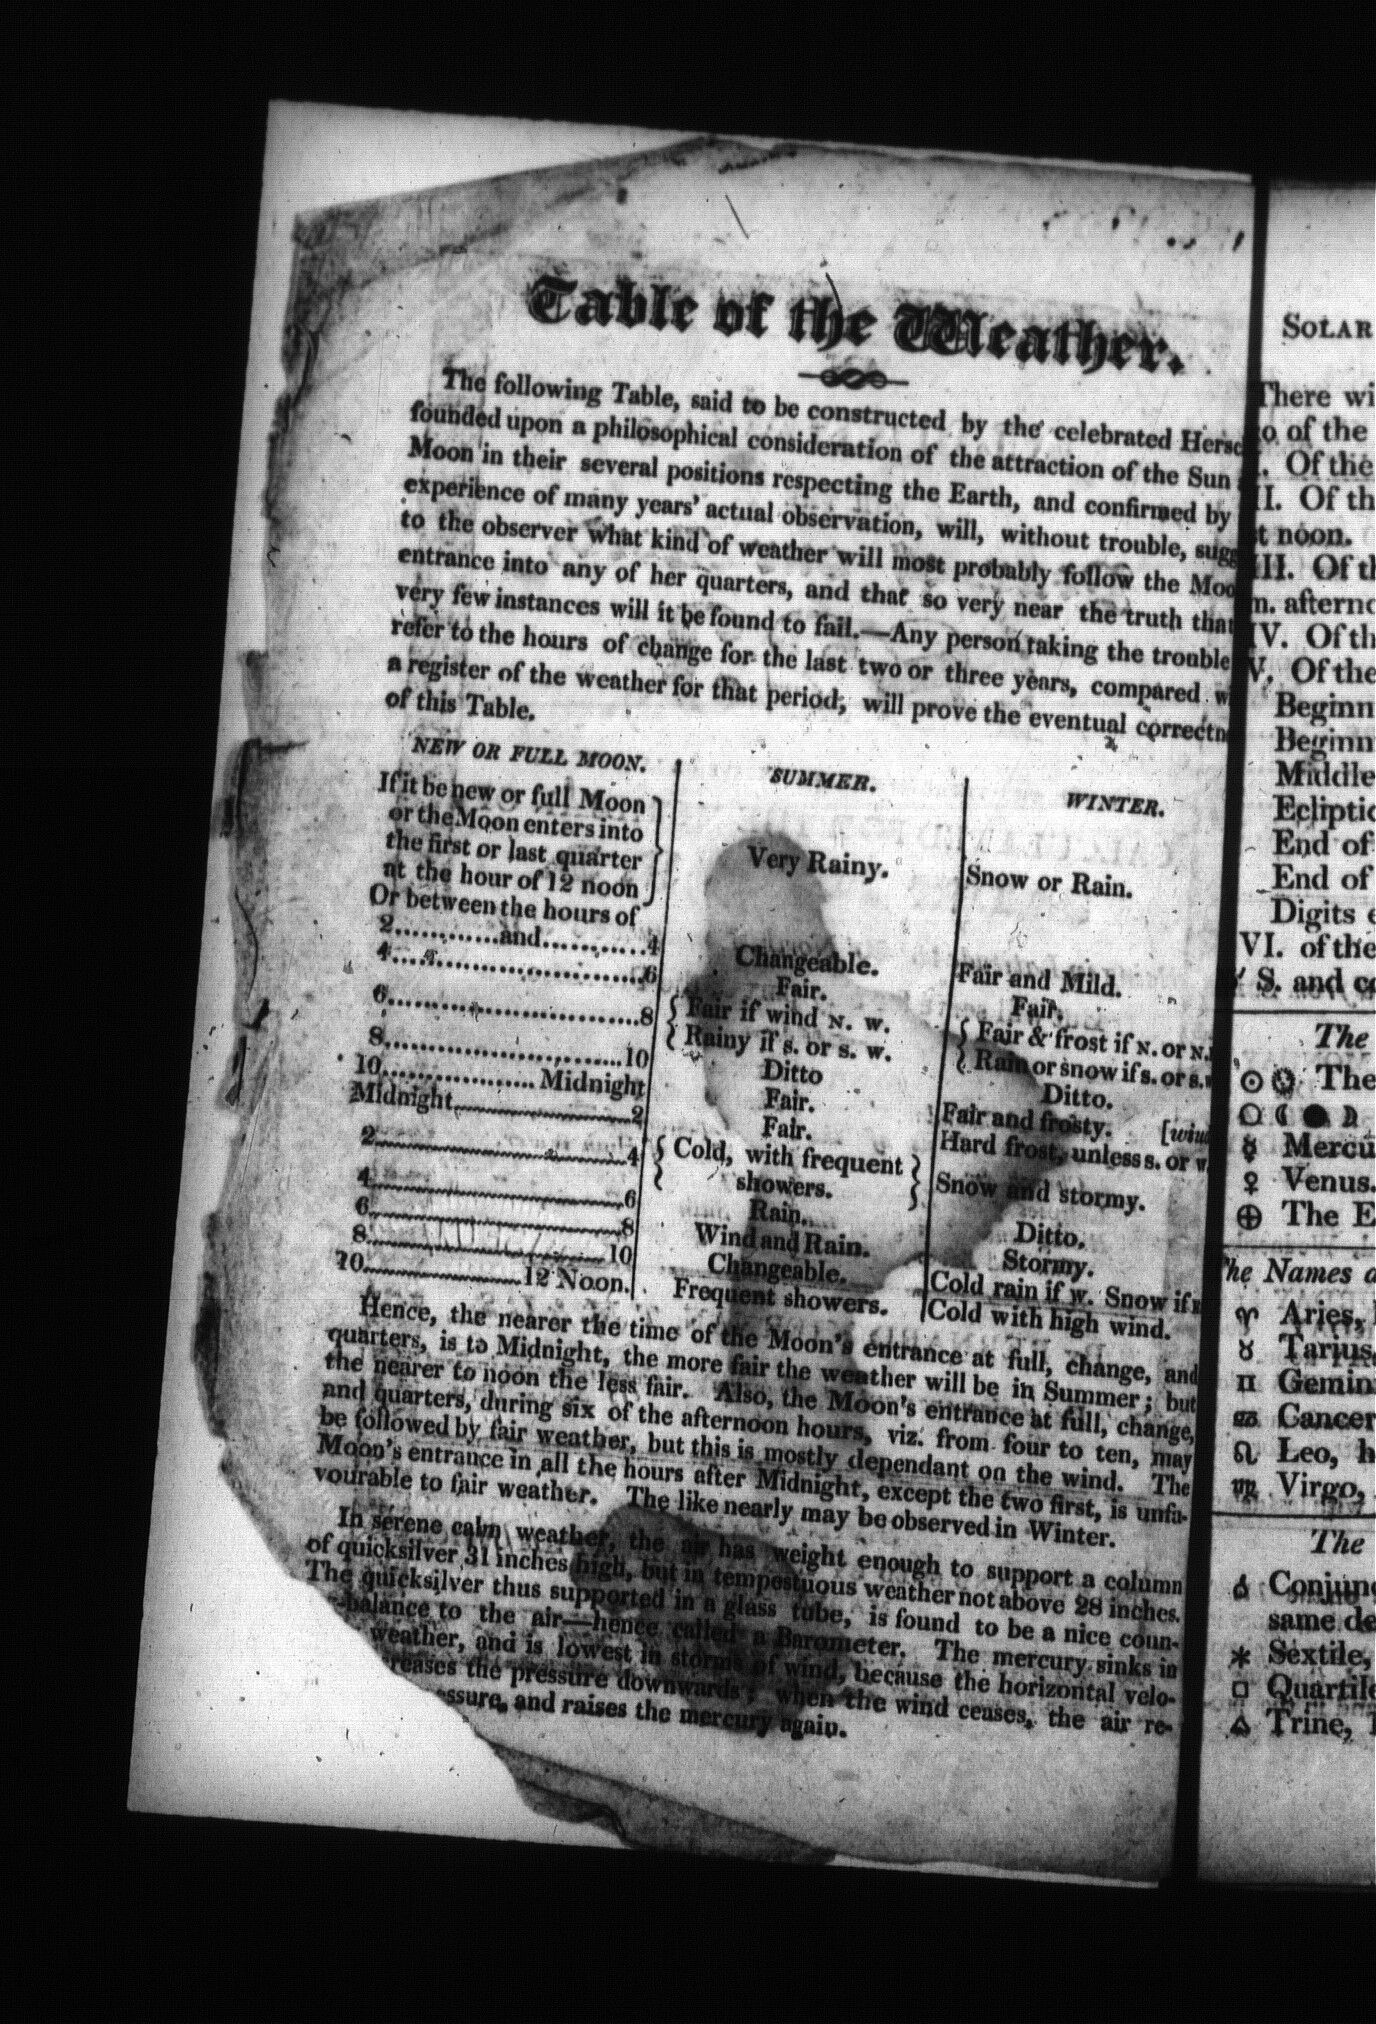 Table of the Weather.
The following Table, said to be constructed by the celebrated Hersc
founded upon a philosophical consideration of the attraction of the Sun
Moon in their several positions respecting the Earth, and confirmed by
experience of many years' actual observation, will, without trouble, sugg
to the observer what kind of weather will most probably follow the Moo
entrance into any of her quarters, and that so very near the truth that
very few instances will it be found to fail.—Any person taking the trouble
refer to the hours of change for the last two or three years, compared w
a register of the weather for that period, will prove the eventual correctn
of this Table.
NEW OR FULL MOON. SUMMER. WINTER.
If it be new or full Moon
or the Moon enters into
the first or last quarter
at the hour of 12 noon
Very Rainy. Snow or Rain.
Or between the hours of
2............and............4 Changeable. Fair and Mild.
4..............................6 Fair. Fair.
6..............................8 { Fair if wind N. W. { Fair & frost if N. or N.
{ Rainy if S. or S. W. { Rain or snow if S. or S.W
8..............................10 Ditto Ditto.
10.................. Midnight Fair. Fair and frosty. [win
Midnight....................2 Fair. Hard frost, unless S. or W.
2..............................4 { Cold, with frequent } Snow and stormy.
{ showers. }
4..............................6 Rain. Ditto.
6..............................8 Wind and Rain. Stormy.
8..............................10 Changeable. Cold rain if W. Snow if
10....................12 Noon. Frequent showers. Cold with high wind.
Hence, the nearer the time of the Moon's entrance at full, change, and
quarters, is to Midnight, the more fair the weather will be in Summer; but
the nearer to noon the less fair. Also, the Moon's entrance at full, change,
and quarters, during six of the afternoon hours, viz. from four to ten, may
be followed by fair weather, but this is mostly dependant on the wind. The
Moon's entrance in all the hours after Midnight, except the two first, is unfa-
vourable to fair weather. The like nearly may be observed in Winter.
In serene calm weather, the air has weight enough to support a column
of quicksilver 31 inches high, but in tempestuous weather not above 28 inches.
The quicksilver thus supported in a glass tube, is found to be a nice coun-
-balance to the air—hence called a Barometer. The mercury sinks in
weather, and is lowest in storms of wind, because the horizontal velo-
creases the pressure downwards; when the wind ceases, the air re-
essure, and raises the mercury again.
SOLAR
There wi
o of the
. Of the
II. Of th
st noon.
III. Of th
m. afterno
IV. Of th
V. Of the
Beginn
Beginn
Middle
Ecliptic
End of
End of
Digits e
VI. of the
S. and co
The
☉ The
Mercu
♀ Venus.
⊕ The E
The Names a
♈ Aries,
♉ Tarius
♊ Gemin
♋ Cancer
♌ Leo, h
♍ Virgo,
The
☌ Conjunc
same de
⚹ Sextile,
□ Quartile
△ Trine,